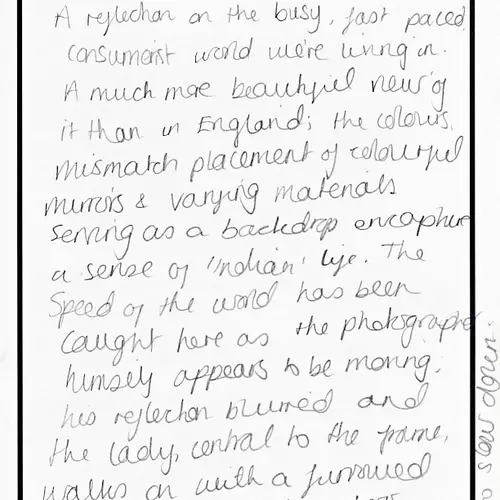 A reflection on the busy, fast paced
consumerist world we're living in.
A much more beautiful view of
it than in England; the colours,
mismatch placement of colourful
mirrors & varying materials
serving as a backdrop encapture
a sense of 'Indian' life. The
Speed of the world has been
caught here as the photographer
himself appears to be moving;
his reflection blurred and
the lady, central to the frame,
walks on with a furrowed
slow down.